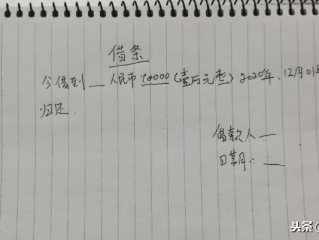 借条
今借到__人民币10000(壹万元整)2020年.12月01
归还.
借款人__
日期:__
头条